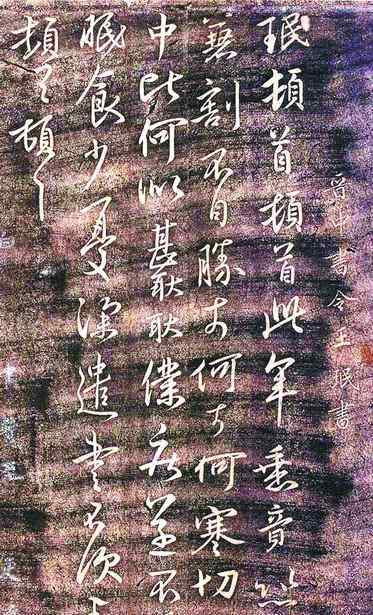 晉中書令王珉書
珉頓首頓首此年垂竟
割不自勝奈何可何寒切
中比何似甚耿耿僕疾並不
眠食少憂深遣書不次
頓首頓首